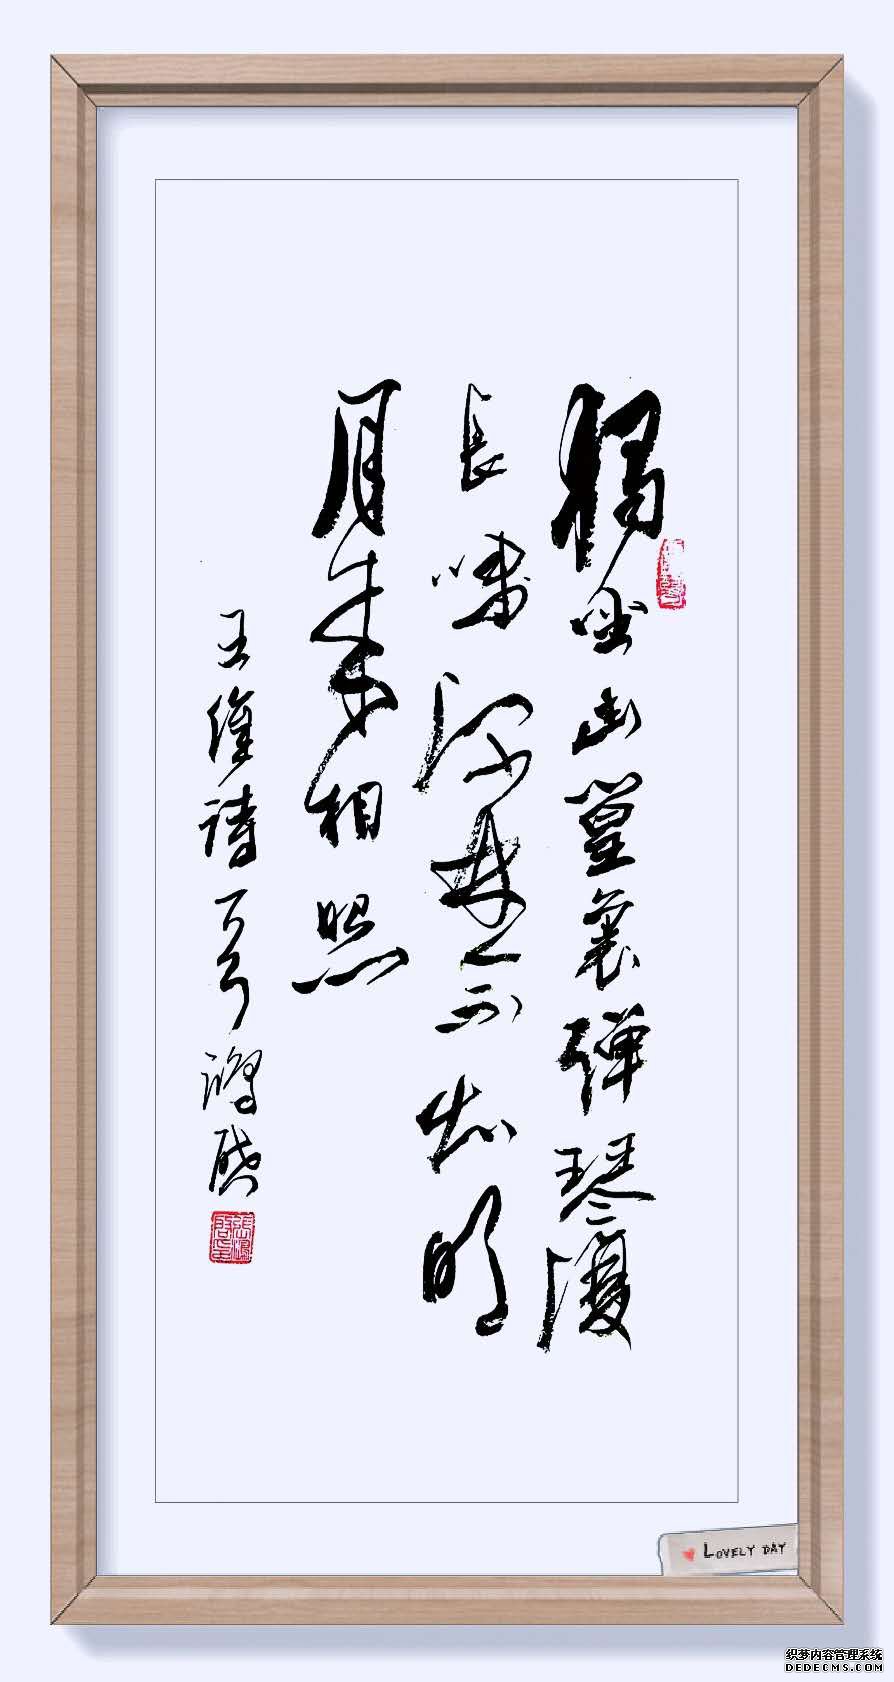 獨坐幽篁裏弹琴復
長嘯深林人不知明
月來相照
王維詩 鴻啟
LOVELY DAY
织梦内容管理系统
DEDECMS.COM